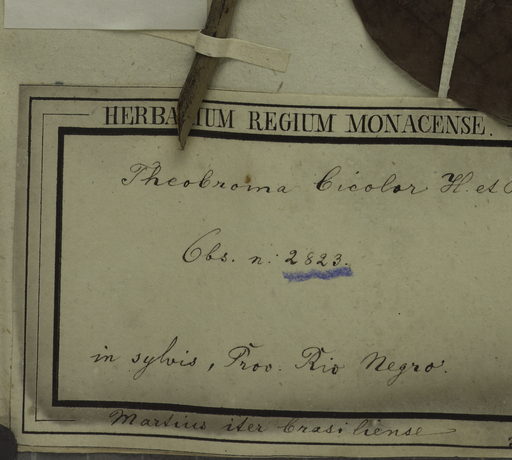 HERBARIUM REGIUM MONACENSE.
Theobroma bicolor H. et
Obs. n: 2823.
in sylvis, Prov. Rio Negro.
Martius iter brasiliense